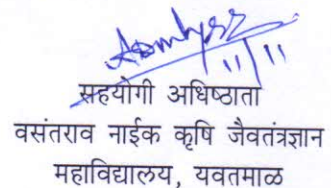 11/11
सहयोगी अधिष्ठाता
वसंतराव नाईक कृषि जैवतंत्रज्ञान
महाविद्यालय, यवतमाळ